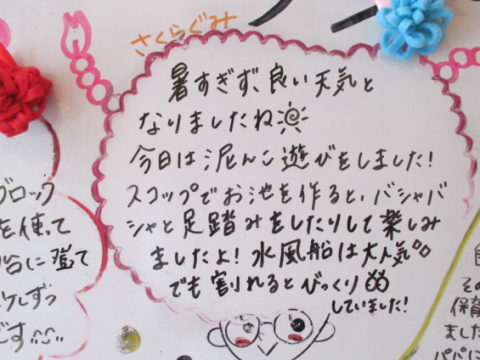 さくらぐみ
暑すぎず、良い天気と
なりましたね
今日は泥んこ遊びをしました!
スコップでお池を作ると、バシャバ
シャと足踏みをしたりして楽しみ
ましたよ!水風船は大人気
でも割れるとびっくり
していました!
ブロック
を使って
です
その
保育
ました
パパに